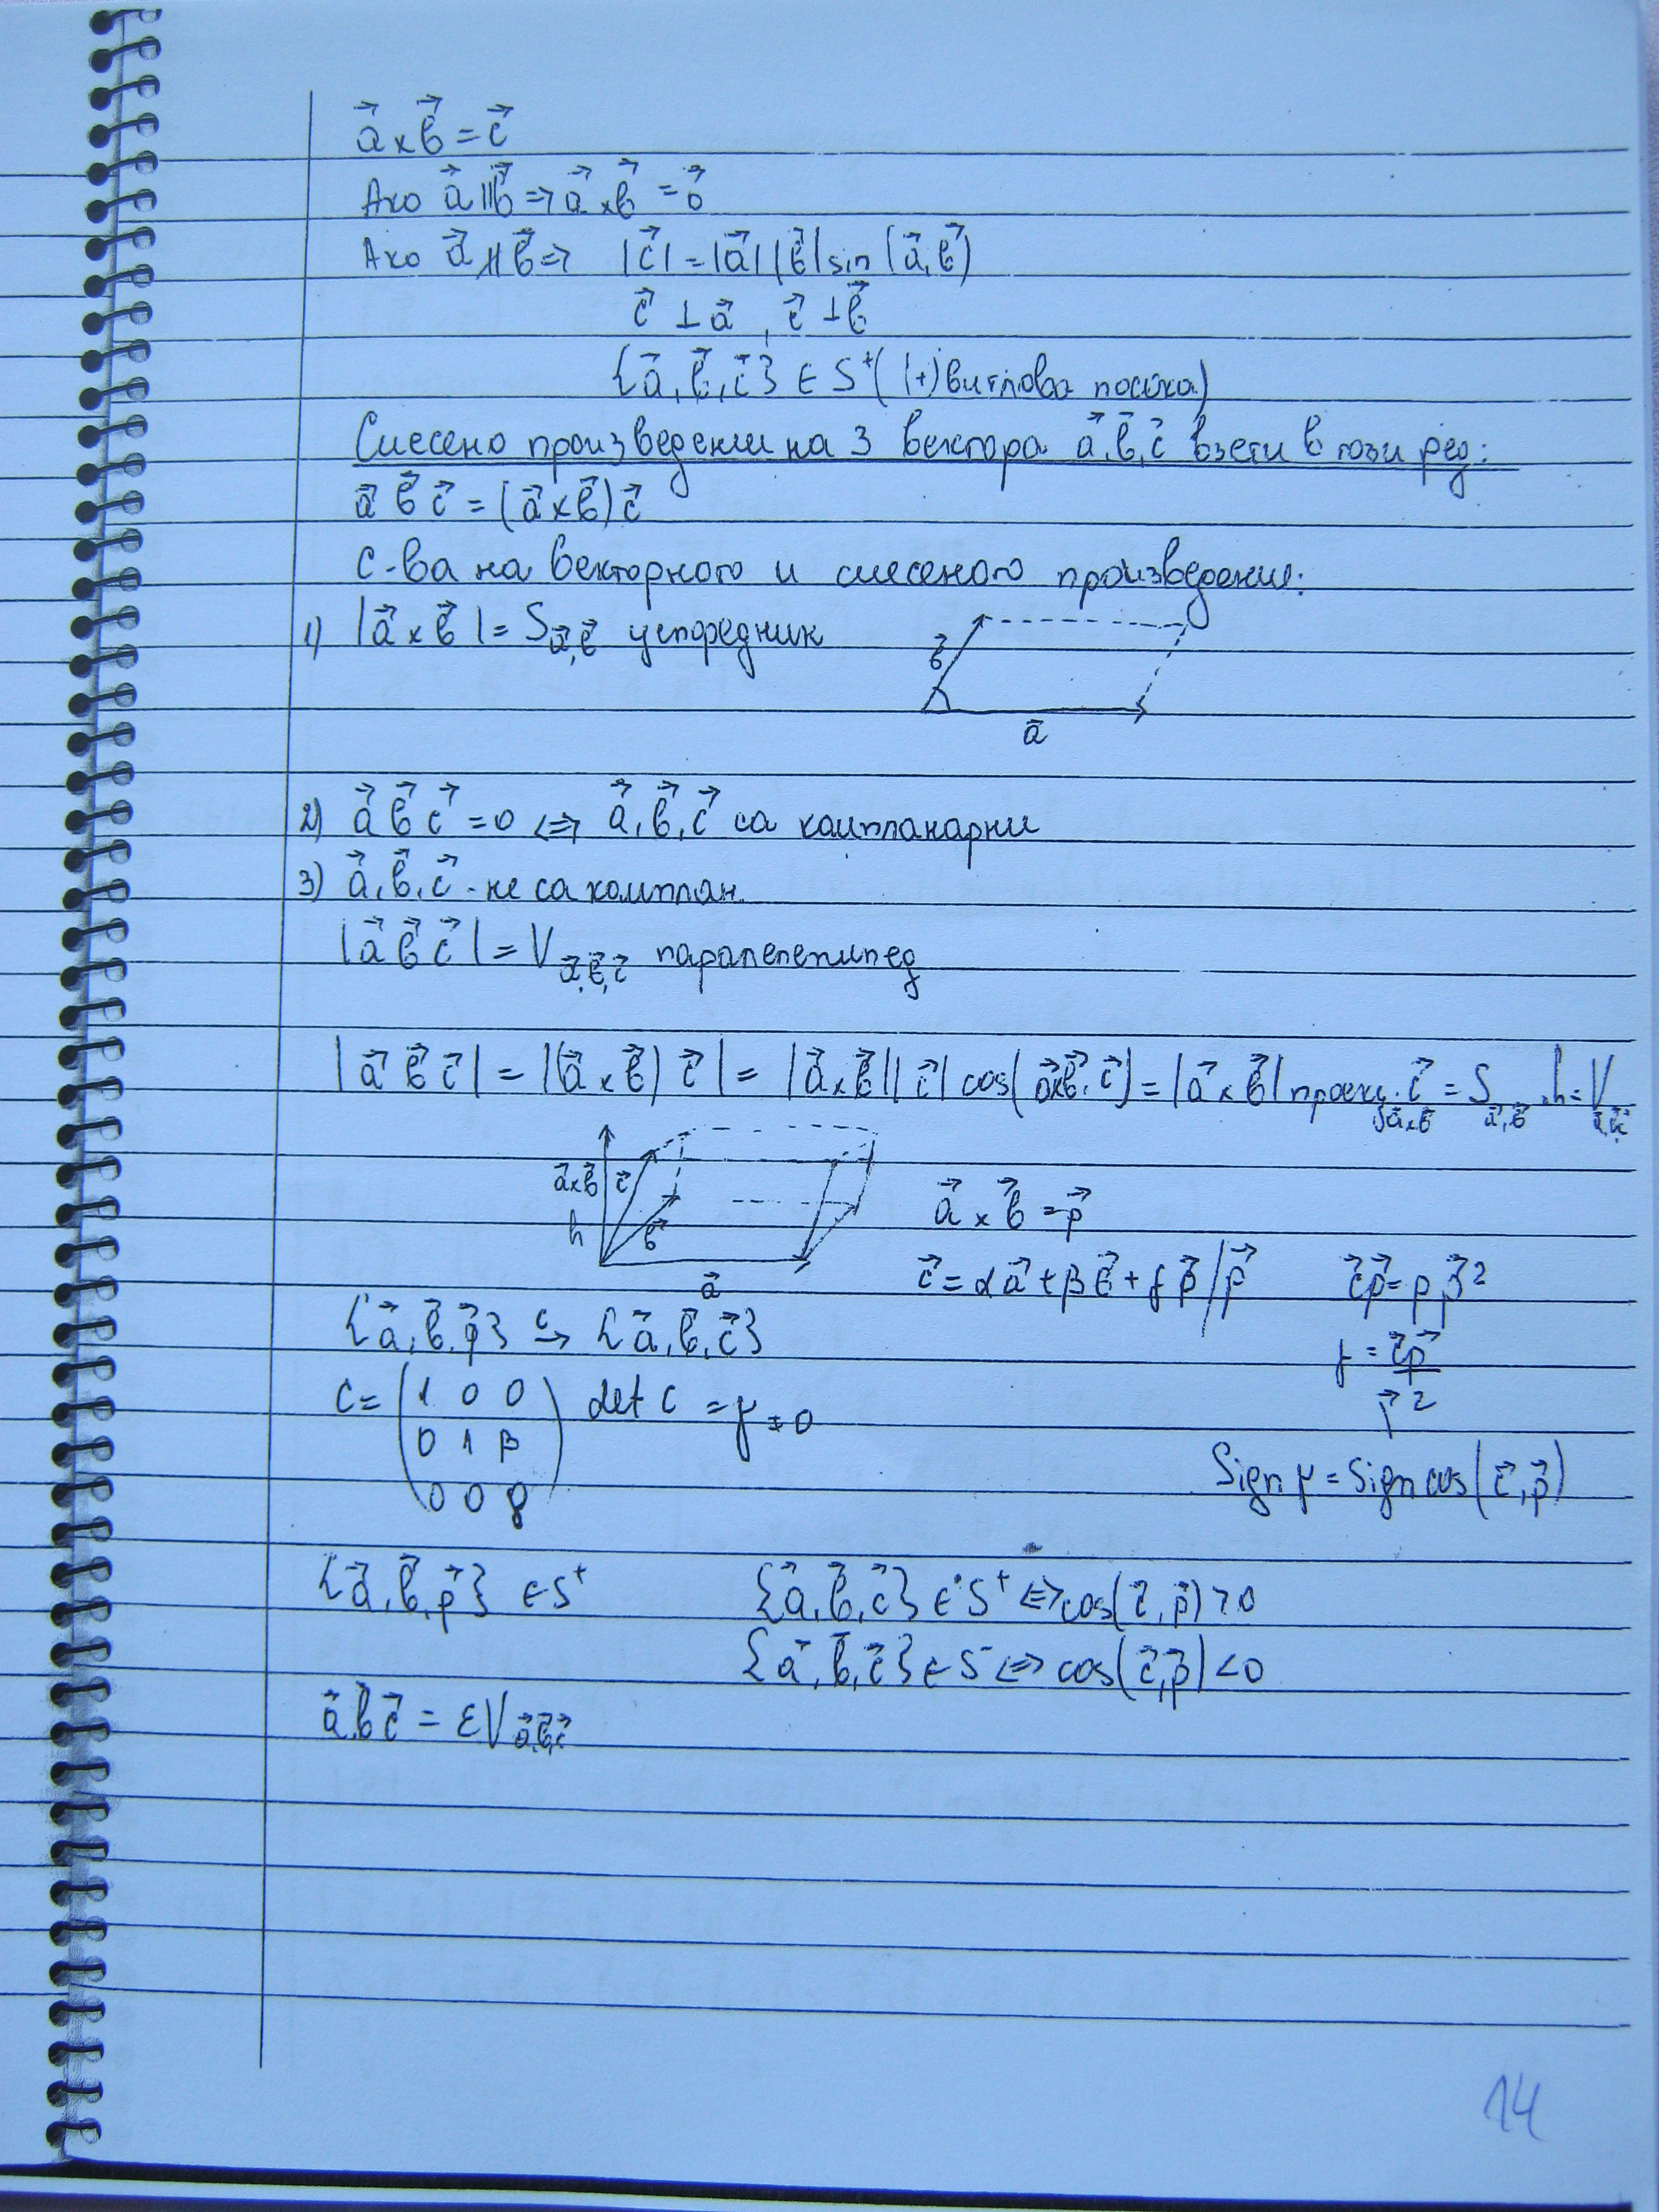 a⃗ × b⃗ = c⃗
Ако a⃗ ∥ b⃗ ⇒ a⃗ × b⃗ = o⃗
Ако a⃗ ∦ b⃗ ⇒ |c⃗| = |a⃗| |b⃗| sin(a⃗, b⃗)
c⃗ ⊥ a⃗, c⃗ ⊥ b⃗
{a⃗, b⃗, c⃗} ∈ S⁺ ((+) витлова посока)
Смесено произведение на 3 вектора a⃗, b⃗, c⃗ взети в този ред:
a⃗ b⃗ c⃗ = (a⃗ × b⃗) c⃗
С-ва на векторното и смесеното произведение:
1) |a⃗ × b⃗| = S a⃗, b⃗ успоредник
b⃗
a⃗
2) a⃗ b⃗ c⃗ = 0 ⇔ a⃗, b⃗, c⃗ са компланарни
3) a⃗, b⃗, c⃗ - не са комплан.
|a⃗ b⃗ c⃗| = V a⃗, b⃗, c⃗ паралепепипед
|a⃗ b⃗ c⃗| = |(a⃗ × b⃗) c⃗| = |a⃗ × b⃗| |c⃗| cos(a⃗×b⃗, c⃗) = |a⃗ × b⃗| проекц. c⃗ = S a⃗, b⃗ . h = V a⃗, b⃗, c⃗
a⃗×b⃗ c⃗
h b⃗
a⃗
a⃗ × b⃗ = p⃗
c⃗ = αa⃗ + βb⃗ + γp⃗ / p⃗
{a⃗, b⃗, p⃗} →ᶜ {a⃗, b⃗, c⃗}
γ = c⃗p⃗ / p⃗²
C = (1 0 0
0 1 β
0 0 γ) det C = γ ≠ 0
Sign γ = Sign cos(c⃗, p⃗)
{a⃗, b⃗, p⃗} ∈ S⁺ {a⃗, b⃗, c⃗} ∈ S⁺ ⇔ cos(c⃗, p⃗) > 0
{a⃗, b⃗, c⃗} ∈ S⁻ ⇔ cos(c⃗, p⃗) < 0
a⃗ b⃗ c⃗ = εV a⃗, b⃗, c⃗
14